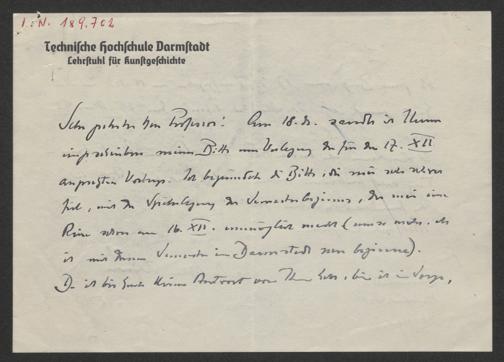 I. N. 189.702
Technische Hochschule Darmstadt
Lehrstuhl für Kunstgeschichte
Sehr geehrter Herr Professor! Am 18. ds. sandte ich Ihnen
meine Bitte um Verlegung des für den 17. XII
angesagten Vortrags. Ich begründete die Bitte, die mir sehr schwer
fiel, mit der Späterlegung des Semesterbeginns, der mir eine
Reise schon am 16. XII. unmöglich macht (umso mehr, als
ich mit dem Semester in Darmstadt neu beginne).
Da ich bis heute keine Antwort von Ihnen habe, bin ich in Sorge,